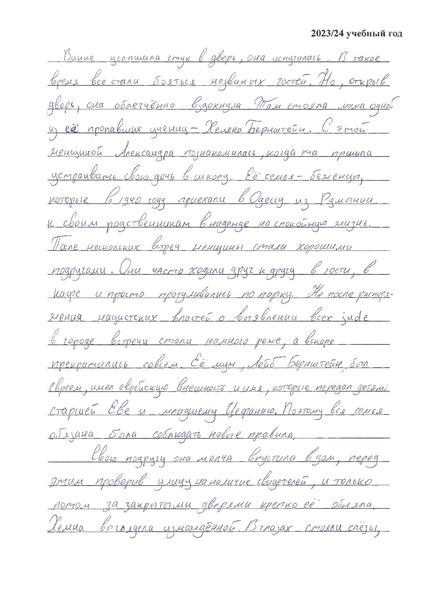 2023/24 учебный год
услышала стук в дверь, она испугалась. В такое
время все стали бояться незваных гостей. Но, открыв
дверь, она облегчённо вздохнула. Там стояла мама одной
из её пропавших учениц – Хелена Бернштейн. С этой
женщиной Александра познакомилась, когда та пришла
устраивать свою дочь в школу. Её семья – беженцы,
которые в 1940 году приехали в Одессу из Румынии
к своим родственникам в надежде на спокойную жизнь.
После нескольких встреч женщины стали хорошими
подругами. Они часто ходили друг к другу в гости, в
кафе и просто прогуливались по парку. Но после распоря-
жения нацистских властей о выявлении всех jude
в городе встречи стали намного реже, а вскоре
прекратились совсем. Её муж, Лейб Бернштейн, был
евреем, имел еврейскую внешность и имя, которые передал детям:
старшей Еве и младшему Цефанию. Поэтому вся семья
обязана была соблюдать новые правила.
Свою подругу она молча впустила в дом, перед
этим проверив улицу на наличие свидетелей, и только
потом за закрытыми дверями крепко её обняла.
выглядела измождённой. В глазах стояли слёзы,